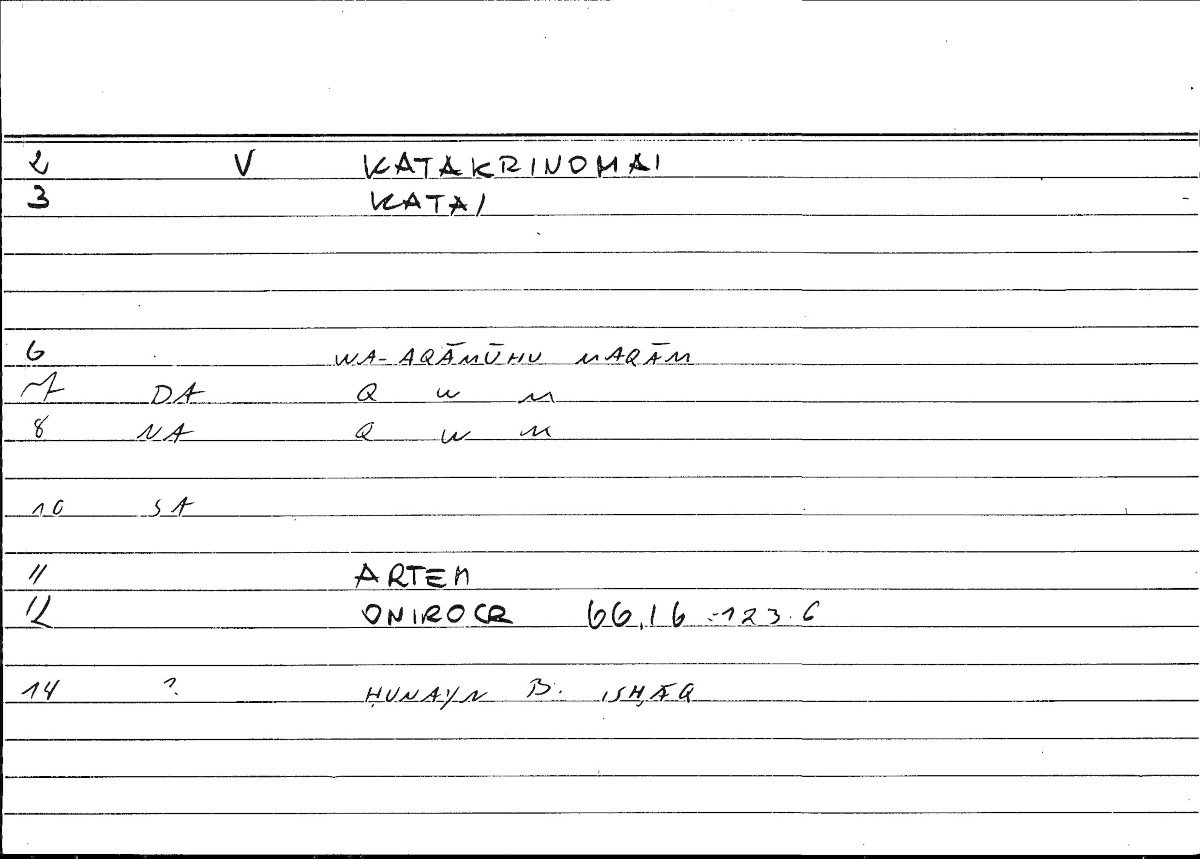 2 V KATAKRINOMAI
3 KATAI
6 WA-AQĀMŪHU MAQĀM
7 DA Q W M
8 NA Q W M
10 SA
11 ARTEM
12 ONIROCR 66,16 = 123.6
14 ? ḤUNAYN B. ISḤĀQ